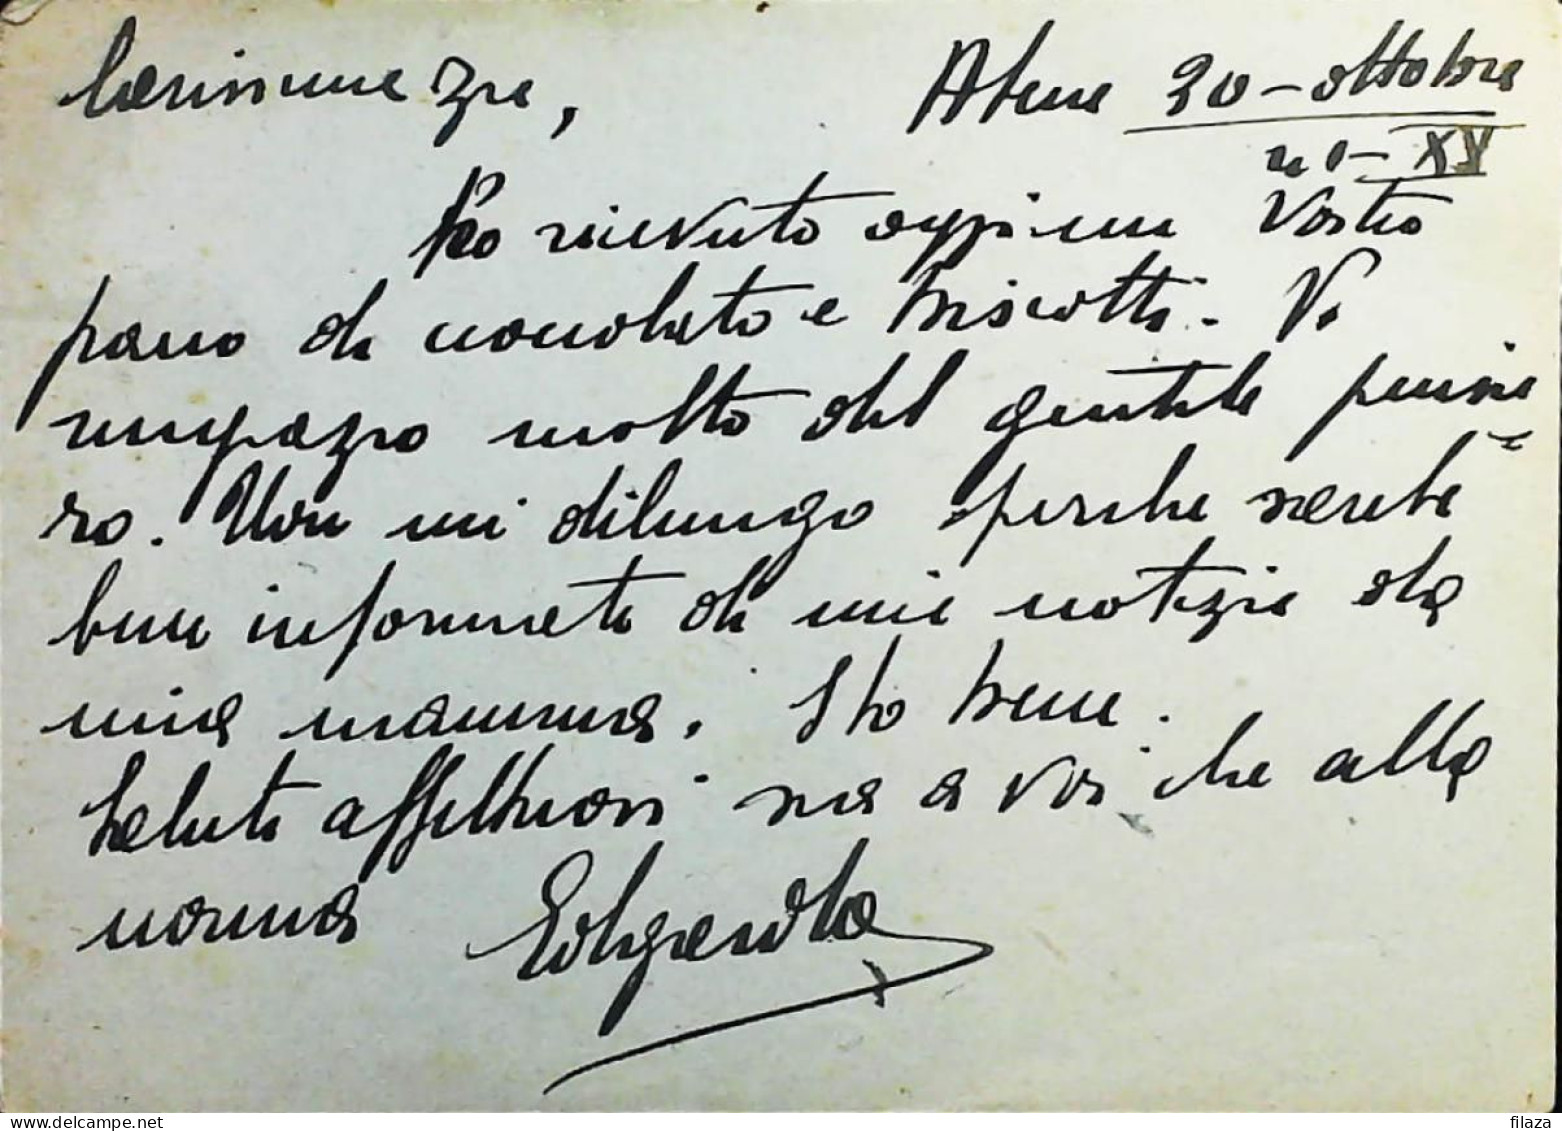 Carissime zie,
Atene 20-ottobre
XX
Ho ricevuto oggi un Vostro
pacco di cioccolato e biscotti. Vi
ringrazio molto del gentile pensie=
ro. Non mi dilungo perché sarete
bene informate di mie notizie da
mia mamma. Sto bene.
Saluti affettuosi sia a voi che alla
nonna
filaza